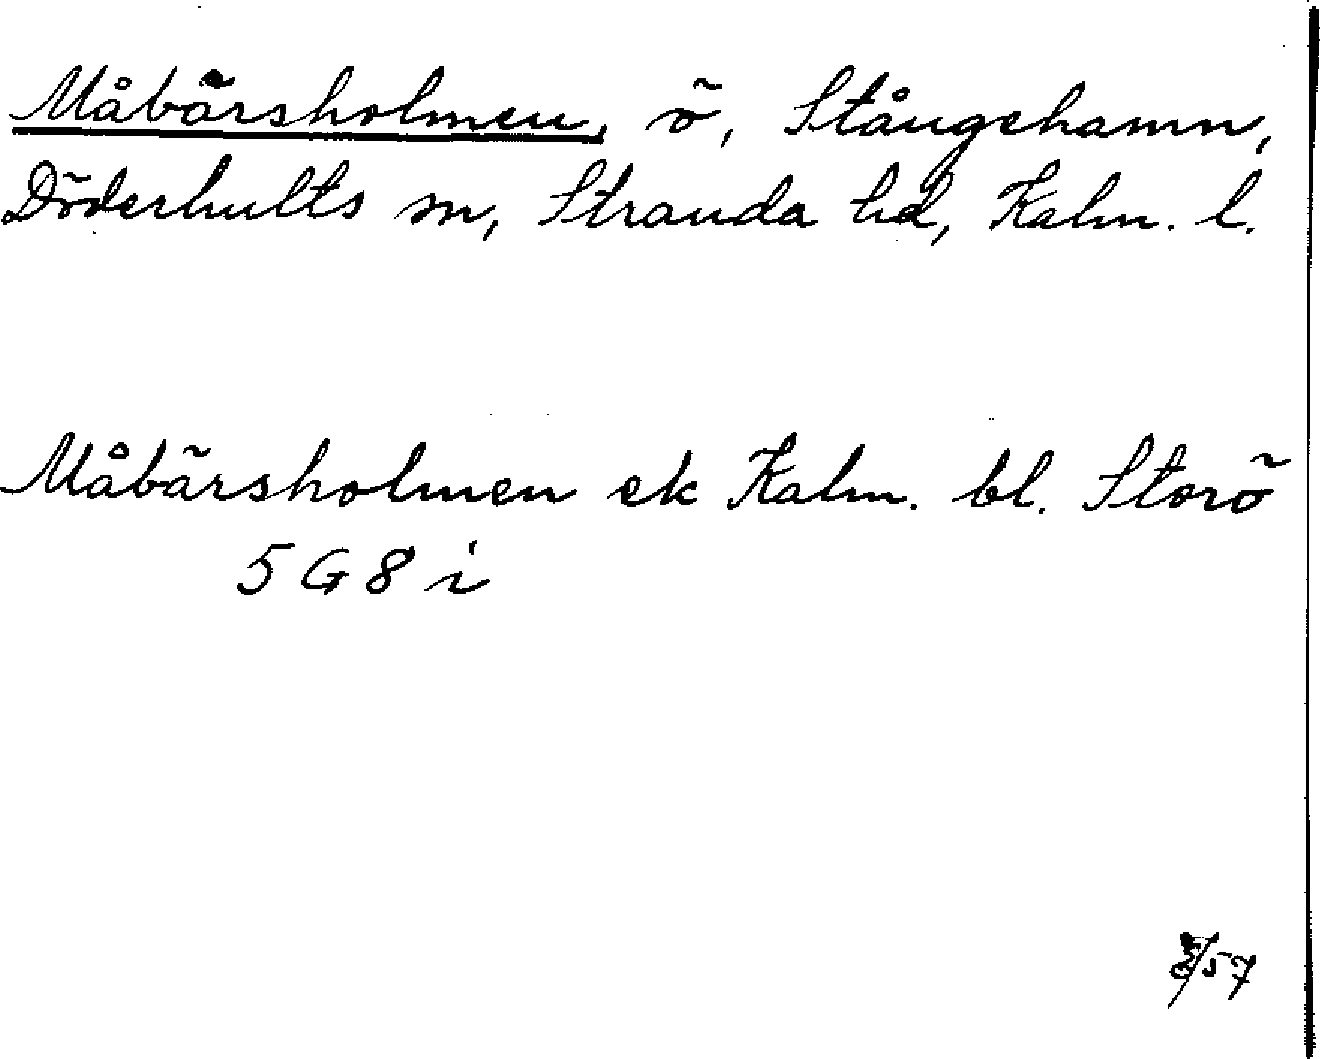 Måbärsholmen, ö, Stångehamn,
Döderhults sn, Stranda hd, Kalm. l.
Måbärsholmen ek Kalm. bl. Storö
5 G 8 i